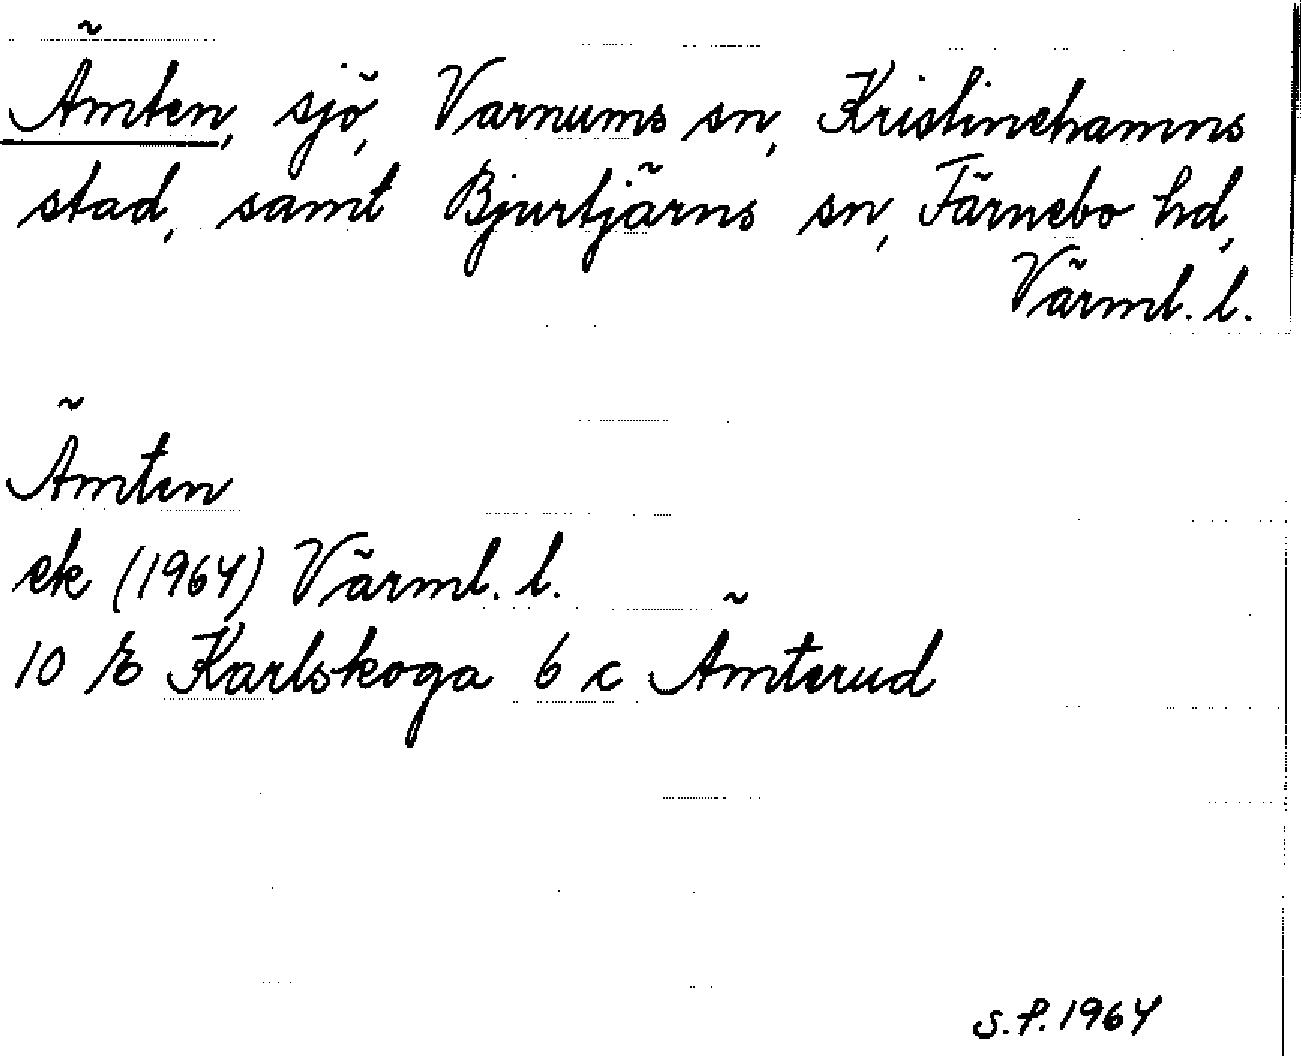 Ämten, sjö, Varnums sn, Kristinehamns
stad, samt Bjurtjärns sn, Färnebo hd,
Värml. l.
Ämten
ek (1964) Värml. l.
10 E Karlskoga 6 c Ämterud
S.P. 1964